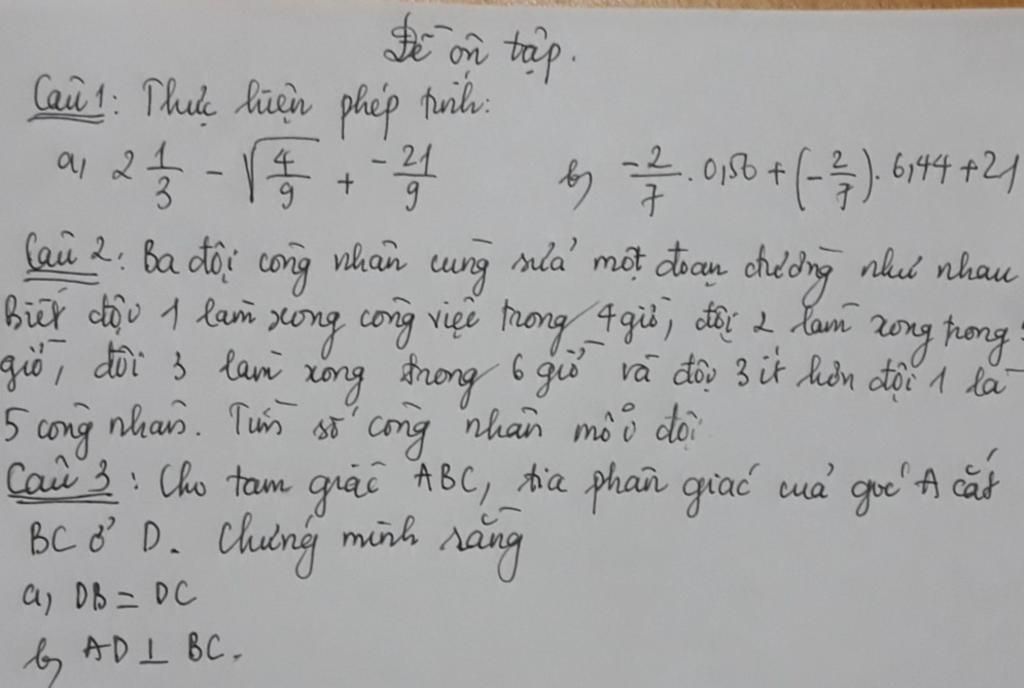 Đề ôn tập.
Câu 1: Thực hiện phép tính:
a, 2 1/3 - √(4/9) + -21/9 b, -2/7 . 0,56 + (-2/7) . 6,44 + 21
Câu 2: Ba đội công nhân cùng sửa một đoạn đường như nhau
Biết đội 1 làm xong công việc trong 4 giờ, đội 2 làm xong trong
giờ, đội 3 làm xong trong 6 giờ và đội 3 ít hơn đội 1 là
5 công nhân. Tìm số công nhân mỗi đội
Câu 3: Cho tam giác ABC, tia phân giác của góc A cắt
BC ở D. Chứng minh rằng
a, DB = DC
b, AD ⊥ BC.